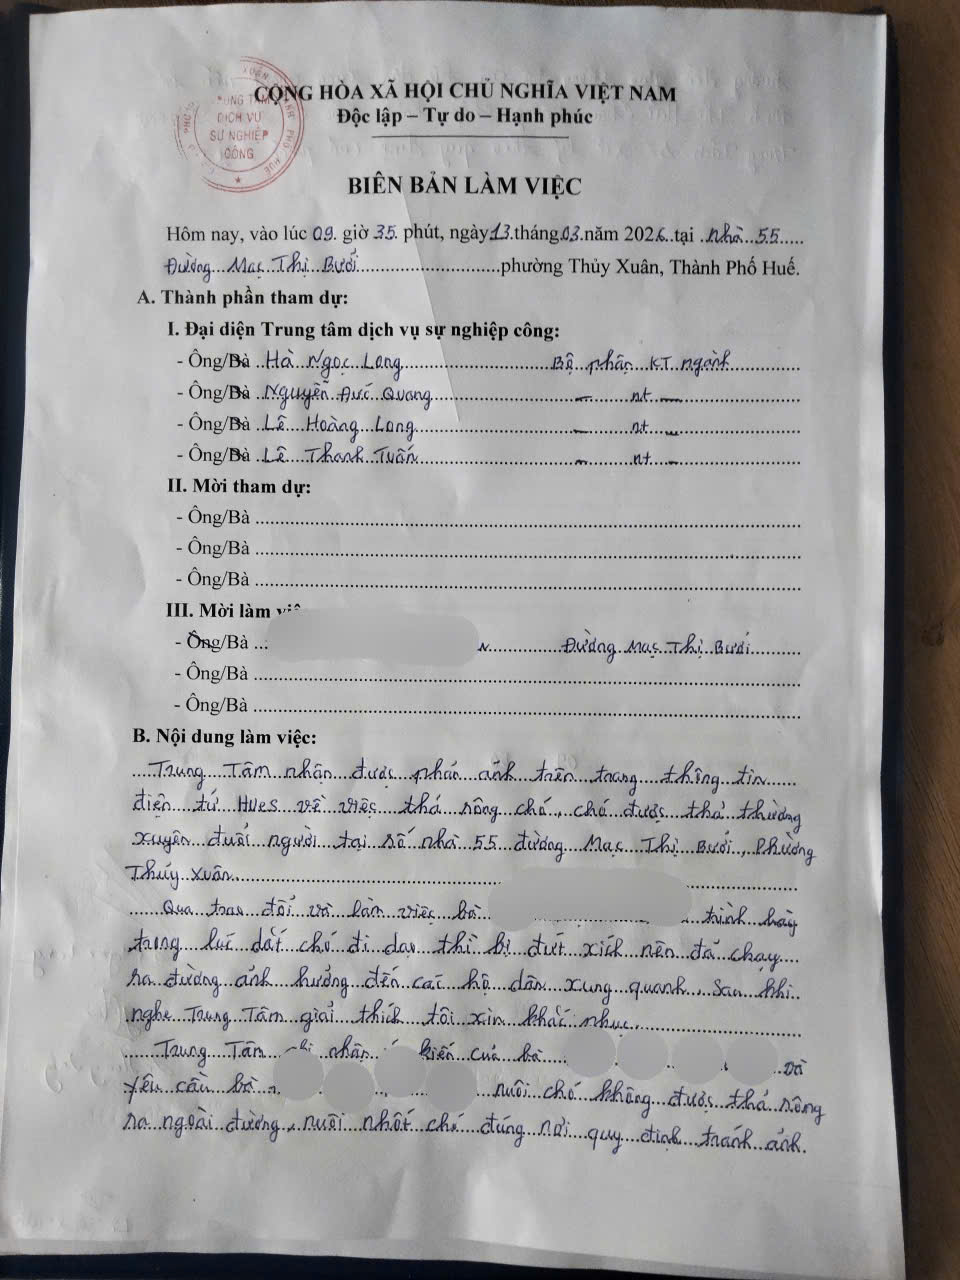 CỘNG HÒA XÃ HỘI CHỦ NGHĨA VIỆT NAM
Độc lập – Tự do – Hạnh phúc
TRUNG TÂM
DỊCH VỤ
SỰ NGHIỆP
CÔNG
BIÊN BẢN LÀM VIỆC
Hôm nay, vào lúc 09 giờ 35 phút, ngày 13 tháng 03 năm 2026 tại nhà 55
Đường Mạc Thị Bưởi phường Thủy Xuân, Thành Phố Huế.
A. Thành phần tham dự:
I. Đại diện Trung tâm dịch vụ sự nghiệp công:
- Ông/Bà Hà Ngọc Long Bộ phận KT ngành
- Ông/Bà Nguyễn Đức Quang nt
- Ông/Bà Lê Hoàng Long nt
- Ông/Bà Lê Thanh Tuấn nt
II. Mời tham dự:
- Ông/Bà
- Ông/Bà
- Ông/Bà
III. Mời làm
- Ông/Bà Đường Mạc Thị Bưởi
- Ông/Bà
- Ông/Bà
B. Nội dung làm việc:
Trung Tâm nhận được phản ánh trên trang thông tin
điện tử HueS về việc thả rông chó, chó được thả thường
xuyên đuổi người tại số nhà 55 đường Mạc Thị Bưởi, Phường
Thủy Xuân.
Qua trao đổi và làm việc bà trình bày
trong lúc dắt chó đi dạo thì bị đứt xích nên đã chạy
ra đường ảnh hưởng đến các hộ dân xung quanh. Sau khi
nghe Trung Tâm giải thích tôi xin khắc phục.
Trung Tâm ghi nhận ý kiến của bà và
yêu cầu bà nuôi chó không được thả rông
ra ngoài đường, nuôi nhốt chó đúng nơi quy định tránh ảnh